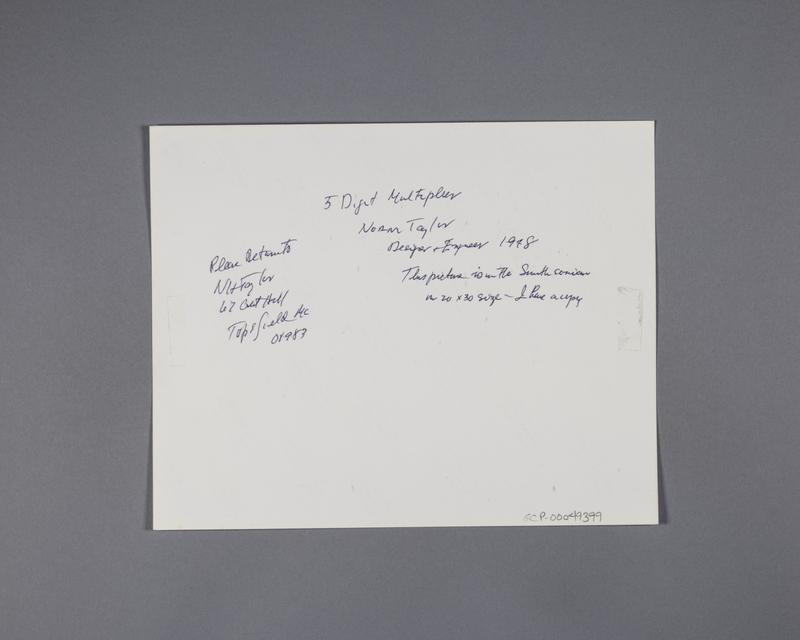 5 Digit Multiplier
Norm Taylor
Designer + Engineer 1948
This picture is in the Smithsonian
in 20 x 30 size - I have a copy
Please Return to
NH Taylor
Hill
Topsfield
01983
GCP-00049399